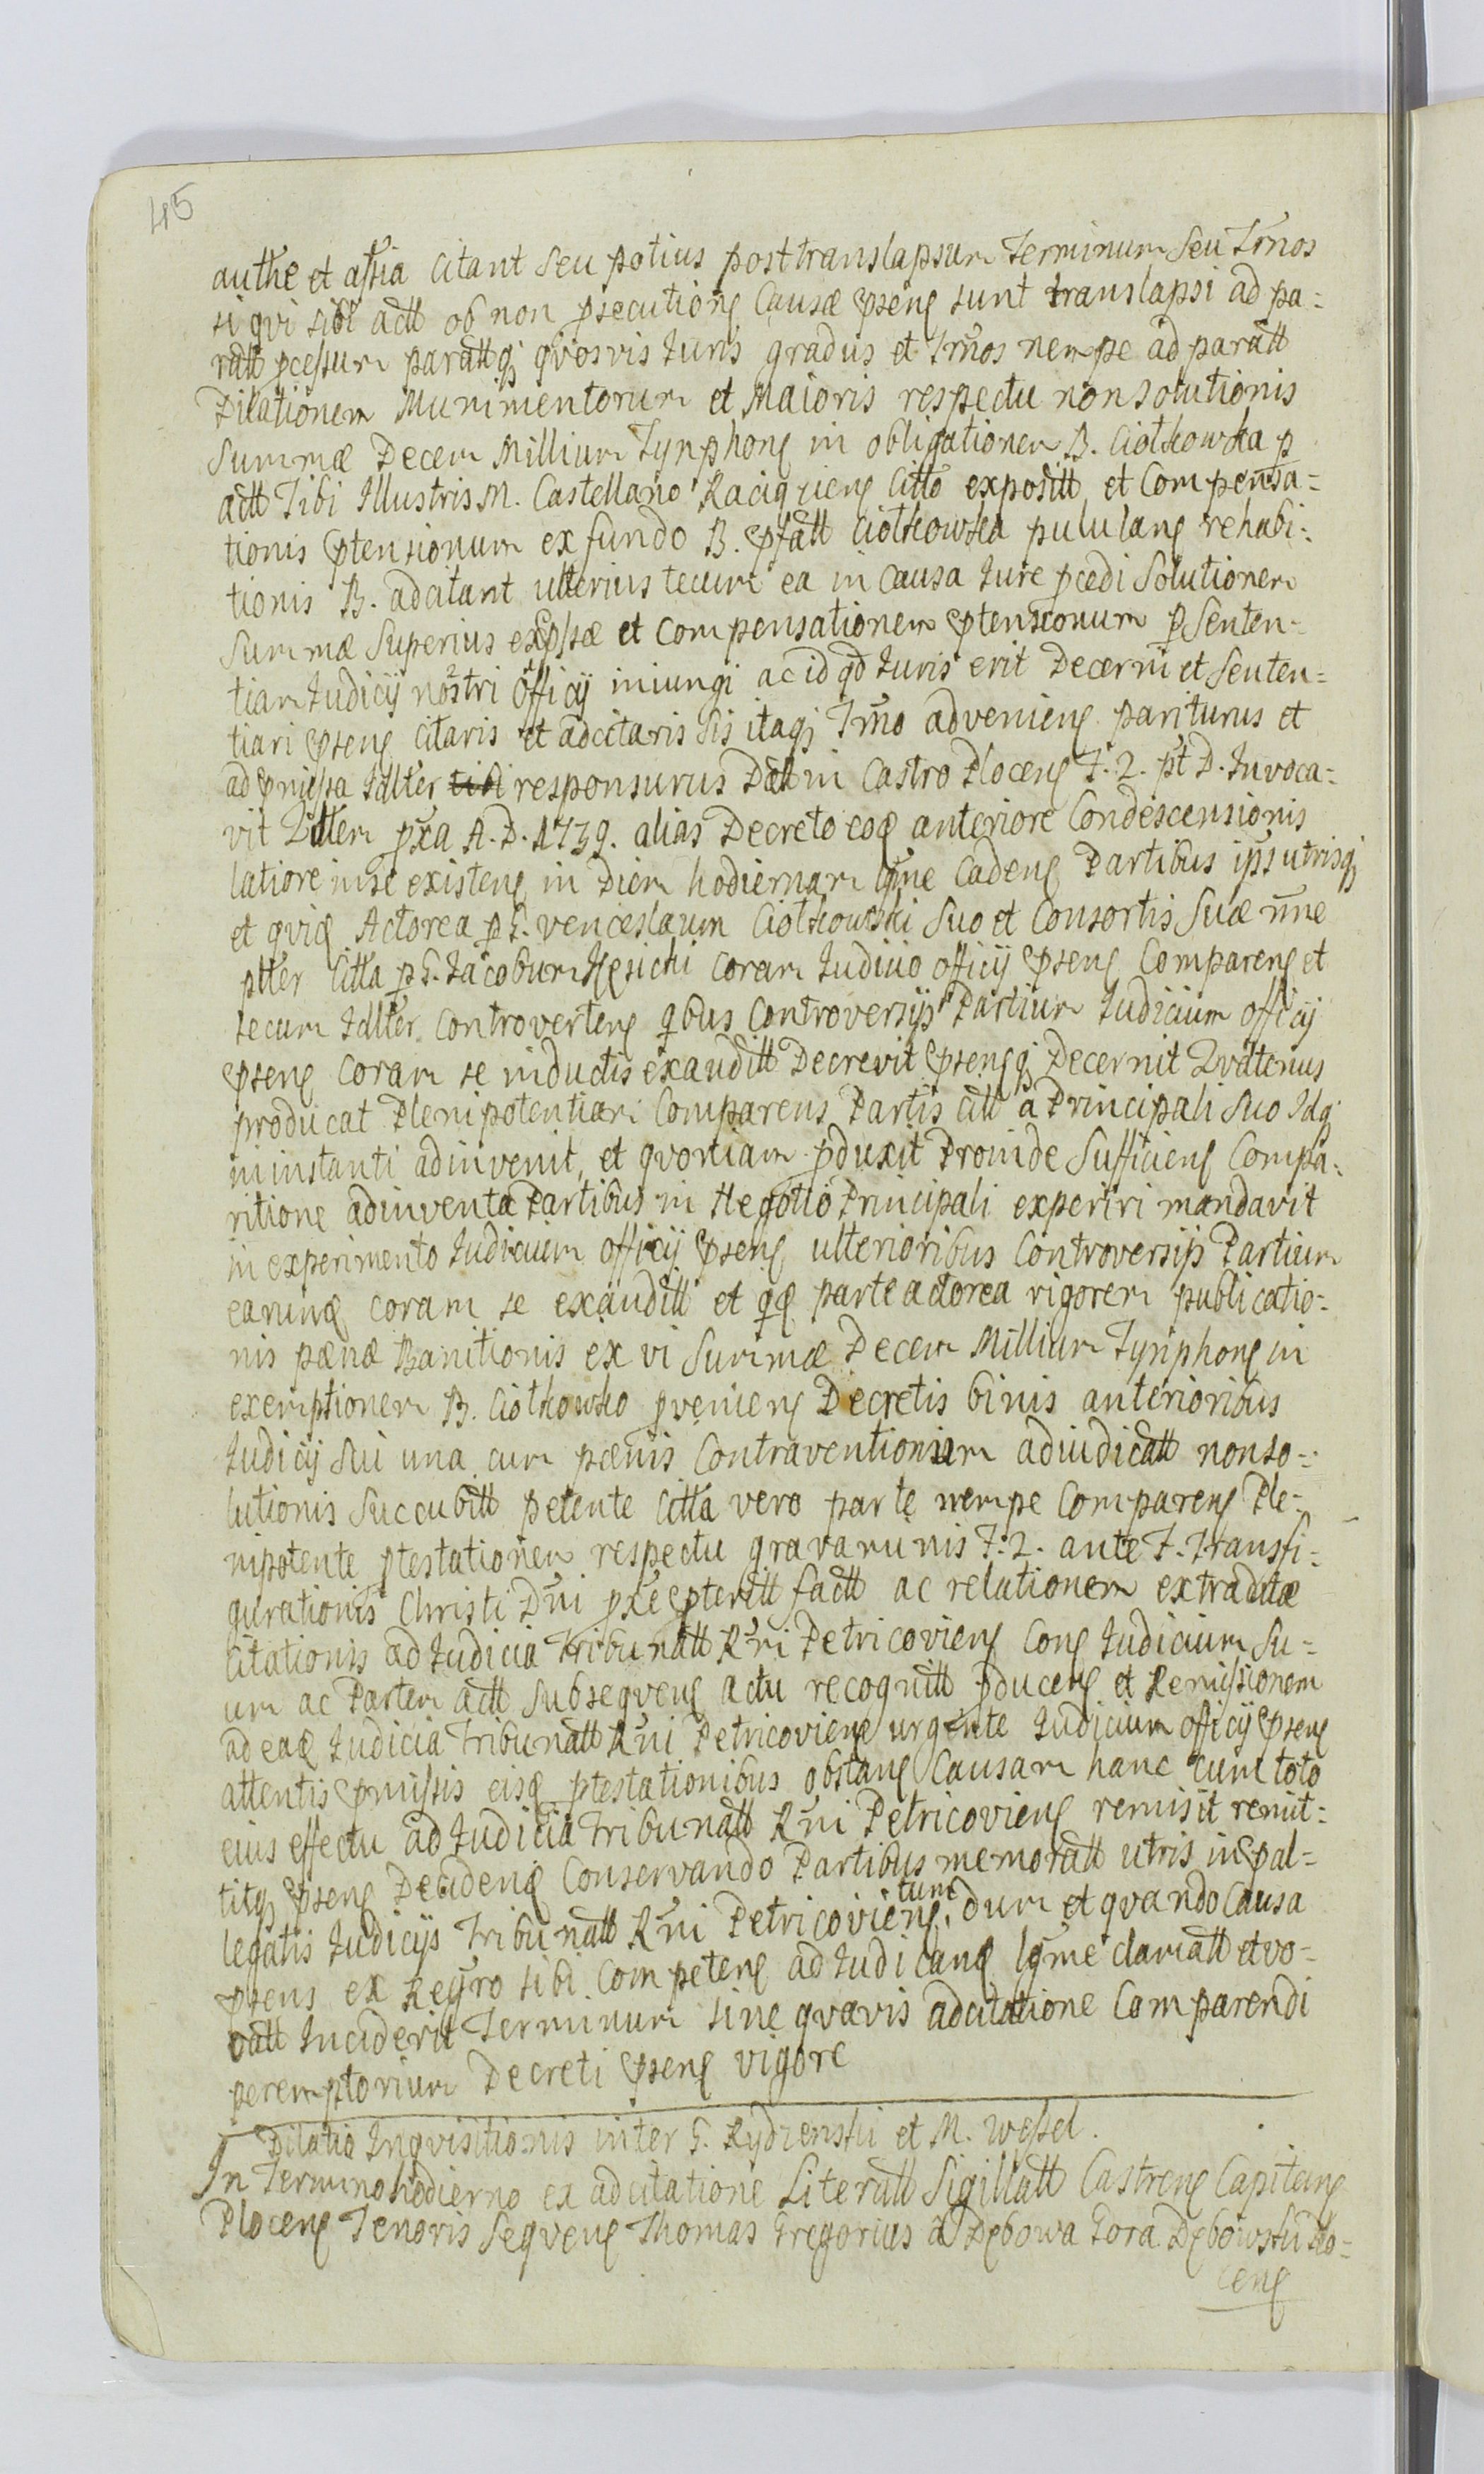 45
authe et assia Citant Seu potius post translapsum Terminum Seu Trnos
si qvi sibi actt ob non psecutione Causæ pseng sunt translapsi ad pa=
ratt pcessum parattq qvosvis Juris gradus et Trnos nempe ad paratt
Dilationem Munimentorum et Maioris respectu non solutionis
Summæ Decem Millium Tynphong in obligationem B. Ciołkowska p
actt Tibi Illustris M. Castellano Raciążieng Citto expositt et Compensa=
tionis ptensionum ex fundo B. pfatt Ciołkowska pululang rehabi=
tionis B. adcitant ulterius tecum ea in Causa Jure pcedi Solutionem
Summæ Superius expssæ et Compensationem ptensionum p Senten=
tiam Judicij nostri Officij iniungi ac id qd Juris erit Decerni et Senten=
tiari pseng Citaris et adcitaris sis itaq Trno advenieng pariturus et
ad pmissa Jdlter responsurus Datt in Castro Ploceng F. 2. pt D. Invoca=
vit Littem pxa A. D. 1739. alias Decreto eoq anteriore Condescensionis
latiore in se existeng in Diem hodiernam lgme Cadeng Partibus ips utrisq
et qvidq Actorea p G. Venceslaum Ciołkowski Suo et Consortis Suæ nne
ptter Citta p G. Jacobum coram Judicio officij pseng Compareng et
secum Jdlter Controverteng qbus Controversijs Partium Judicium officij
pseng coram se inductis exauditt Decrevit psengq Decernit Qvatenus
producat Plenipotentiam Comparens Partis citt à Principali Suo Idq
in instanti adinvenit, et qvoniam pduxit Proinde Sufficieng Compa=
ritione adinventa Partibus in Negotio Principali experiri mandavit
in experimento Judicium officij pseng ulterioribus Controversijs Partium
earunq coram se exauditt et qdq parte actorea rigorem publicatio=
nis pænæ Banitionis ex vi Summæ Decem Millium Tynphong in
exemptionem B. Ciołkowsko pvenieng Decretis binis anterioribus
Judicij Sui una cum pænis Contraventionum adiudicatt non so=
lutionis Succubitt petente Citta vero parte nempe Compareng Ple=
nipotente ptestationem respectu gravaminis F. 2. ante F. Transfi=
gurationis Christi Dni pxe pteritt factt ac relationem extraditæ
Citationis ad Judicia Tribunatt Rni Petricovieng Cong Judicium Su=
um ac Partem actt Subseqveng actu recognitt pduceng et Remissionem
ad eaq Judicia Tribunatt Rni Petricovieng urgente Judicium officij pseng
attentis pmissis eisq ptestationibus obstang Causam hanc cum toto
eius effectu ad Judicia Tribunatt Rni Petricovieng remisit remit=
titq pseng Decidenq Conservando Partibus memoratt utris in pal=
legatis Judicijs Tribunatt Rni Petricovieng, tunc dum et qvando Causa
psens ex Regro sibi Competeng ad Judicanq lgme clamatt et vo=
catt Inciderit Terminum sine qvavis adcitatione Comparendi
peremptorium Decreti pseng vigore
Dilatio Inqvisitionis inter G. Rydzenski et M. Wessel.
In Termino hodierno ex adcitatione Literatt Sigillatt Castreng Capitang
Ploceng Tenoris Seqveng Thomas Gregorius à Dębowa Gora Dębowski Plo=
ceng